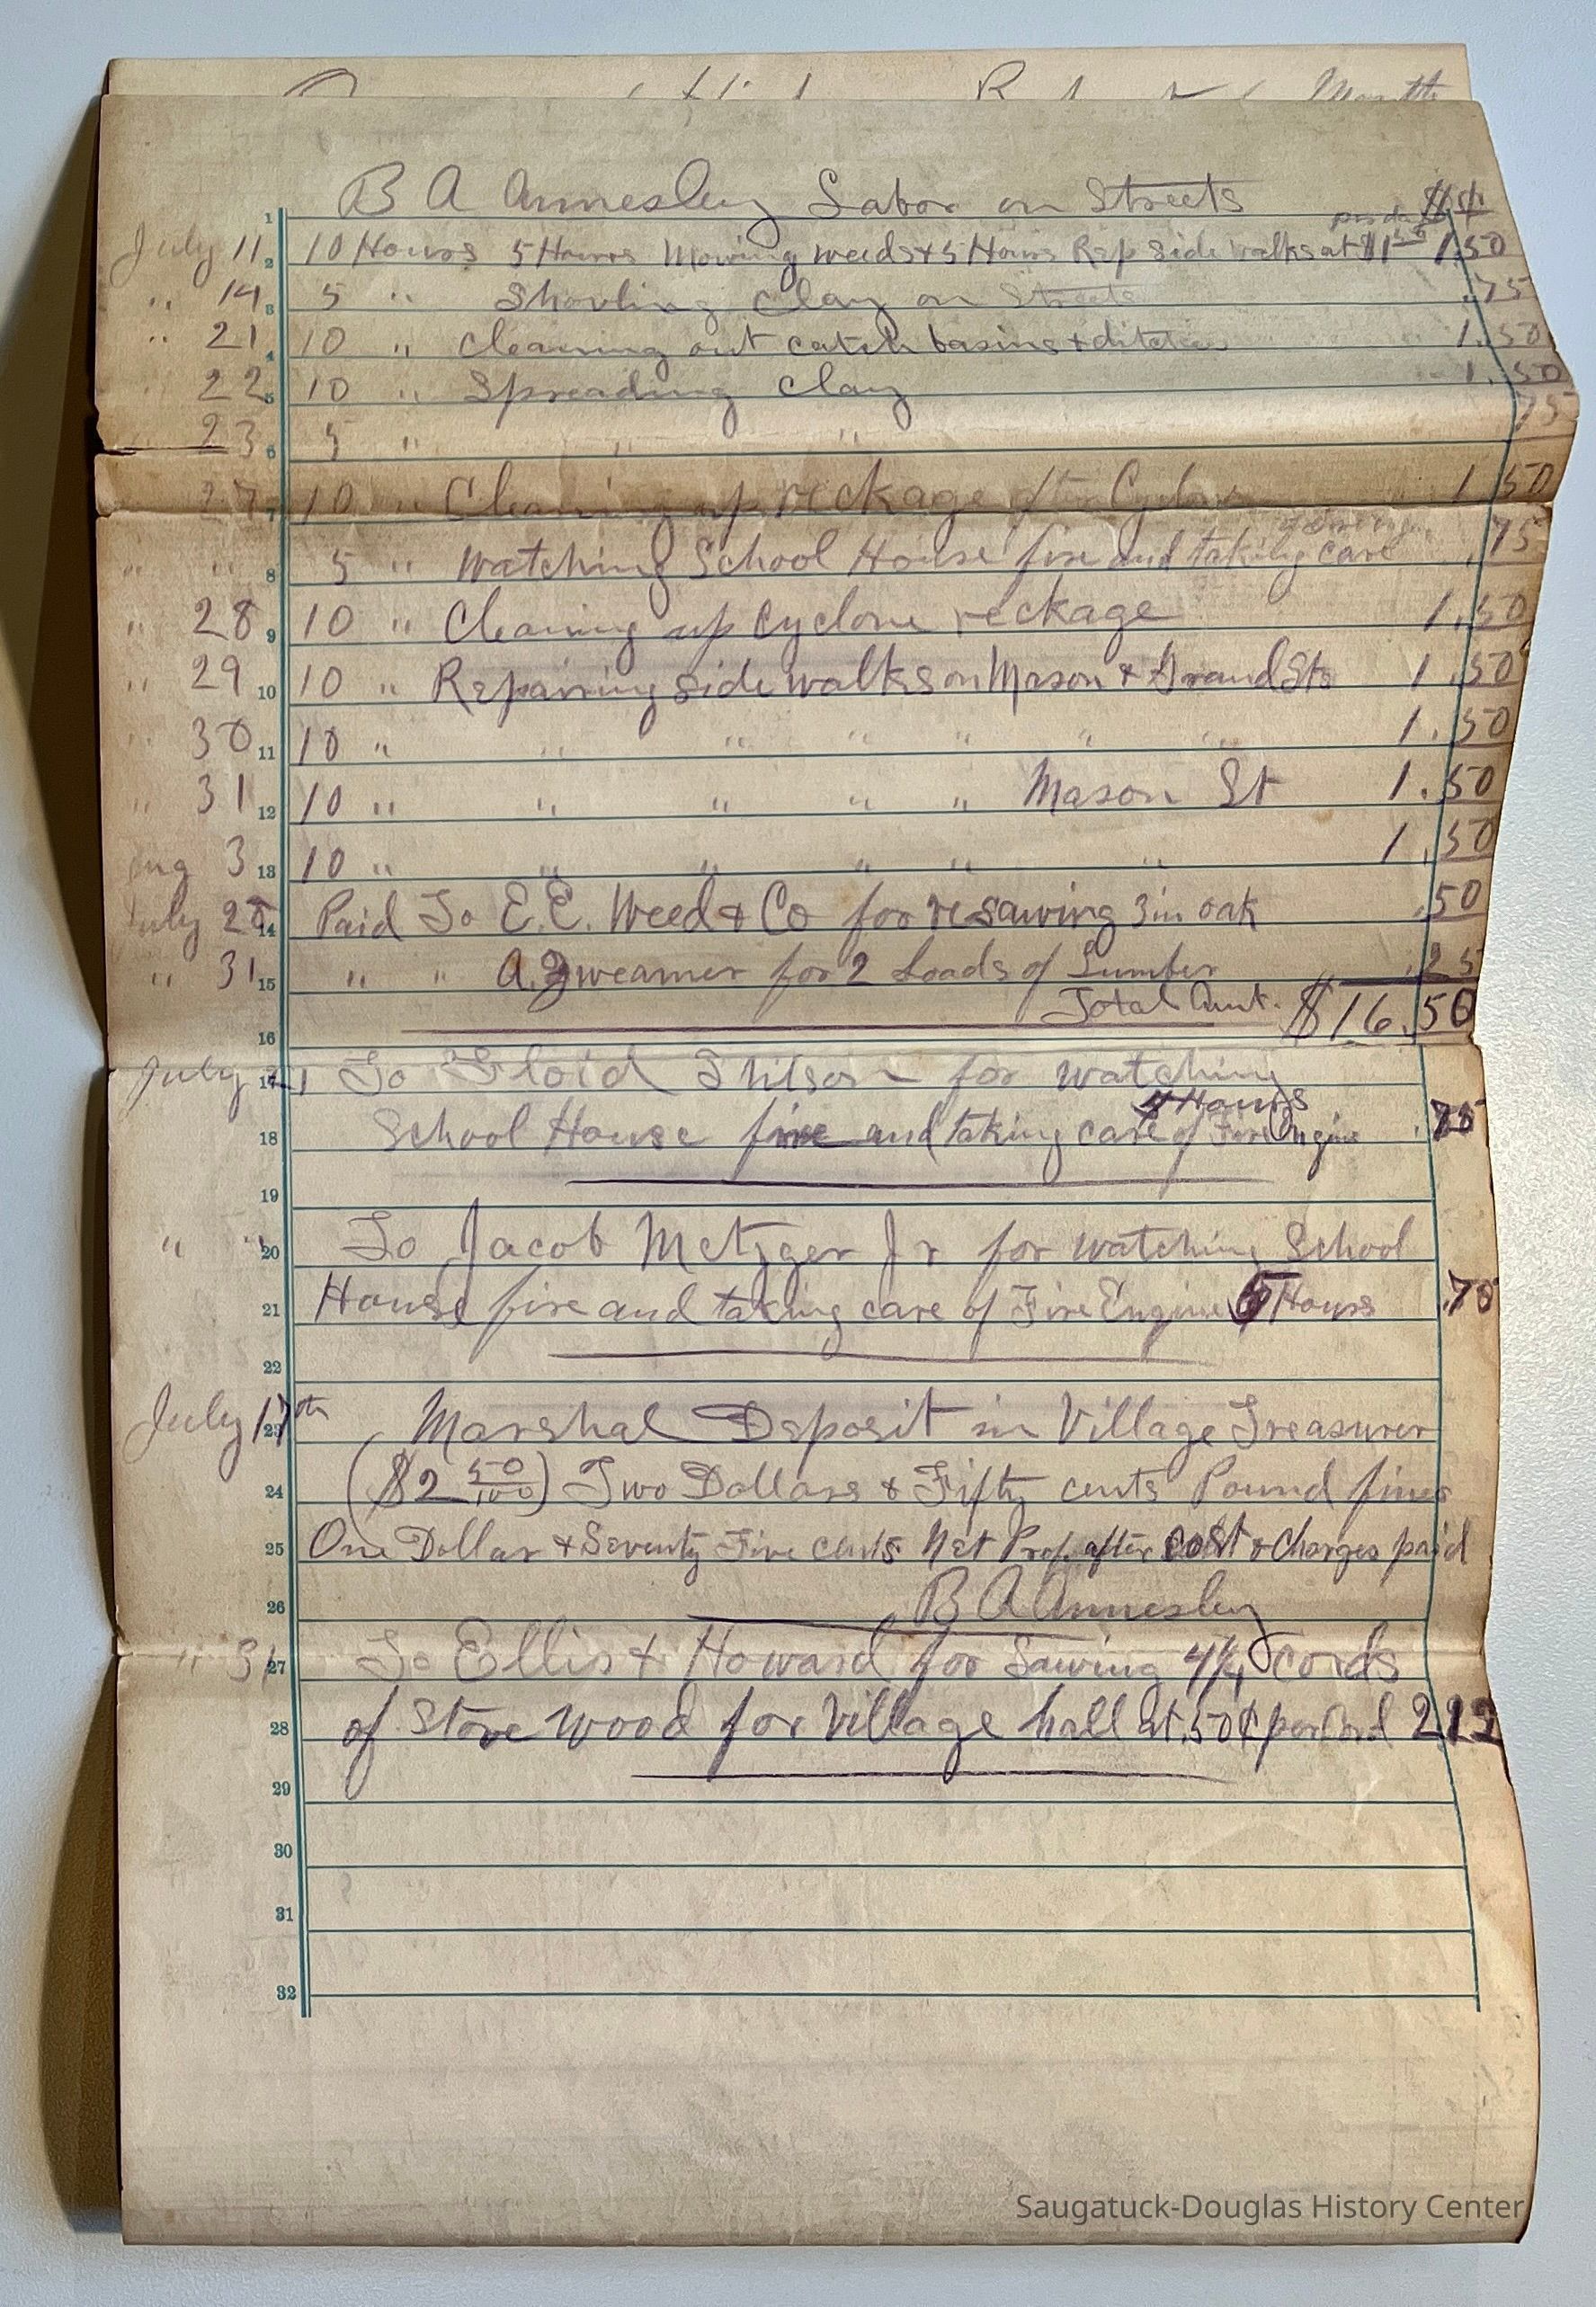 B A Annesley Labor on Streets
per day $ ¢
1
July 11 10 Hours 5 Hours Mowing weeds & 5 Hours Rep Side walks at $1 50 1.50
2
" 14 5 " Shovling clay on Streets .75
3
" 21 10 " cleaning out catch basins & ditches 1.50
4
22 10 " Spreading clay 1.50
5
23 5 " " " 75
6
27 10 " Cleaning up reckage after Cyclone 1.50
7
" " 5 " Watching School House fire and taking care of Fire Engine .75
8
" 28 10 " Cleaning up Cyclone reckage 1.50
9
" 29 10 " Repairing side walks on Mason & Grand Sts 1.50
10
" 30 10 " " " " " " " 1.50
11
" 31 10 " " " " " Mason St 1.50
12
Aug 3 10 " " " " " " 1.50
13
July Paid To E.E. Weed & Co for resawing 3 in oak .50
14
" 31 " " A. Zweamer for 2 Loads of Lumber .25
15
Total Amt. $16.50
16
July To Floid Shilson for watching
17
4 Hours
School House fire and taking care of Fire Engine .75
18
19
" " To Jacob Metzger Jr for watching School
20
House fire and taking care of Fire Engine 5 Hours .75
21
22
July 17th Marshal Deposit in Village Treasurer
23
($2 50/100) Two Dollars & Fifty cents Pound fines
24
One Dollar & Seventy Five cents Net Prof. after cost & Charges paid
25
B A Annesley
26
" 31 To Ellis & Howard for Sawing 4 1/4 cords
27
of Stove Wood for Village hall at .50¢ per Cord 2.12
28
29
30
31
32
Saugatuck-Douglas History Center